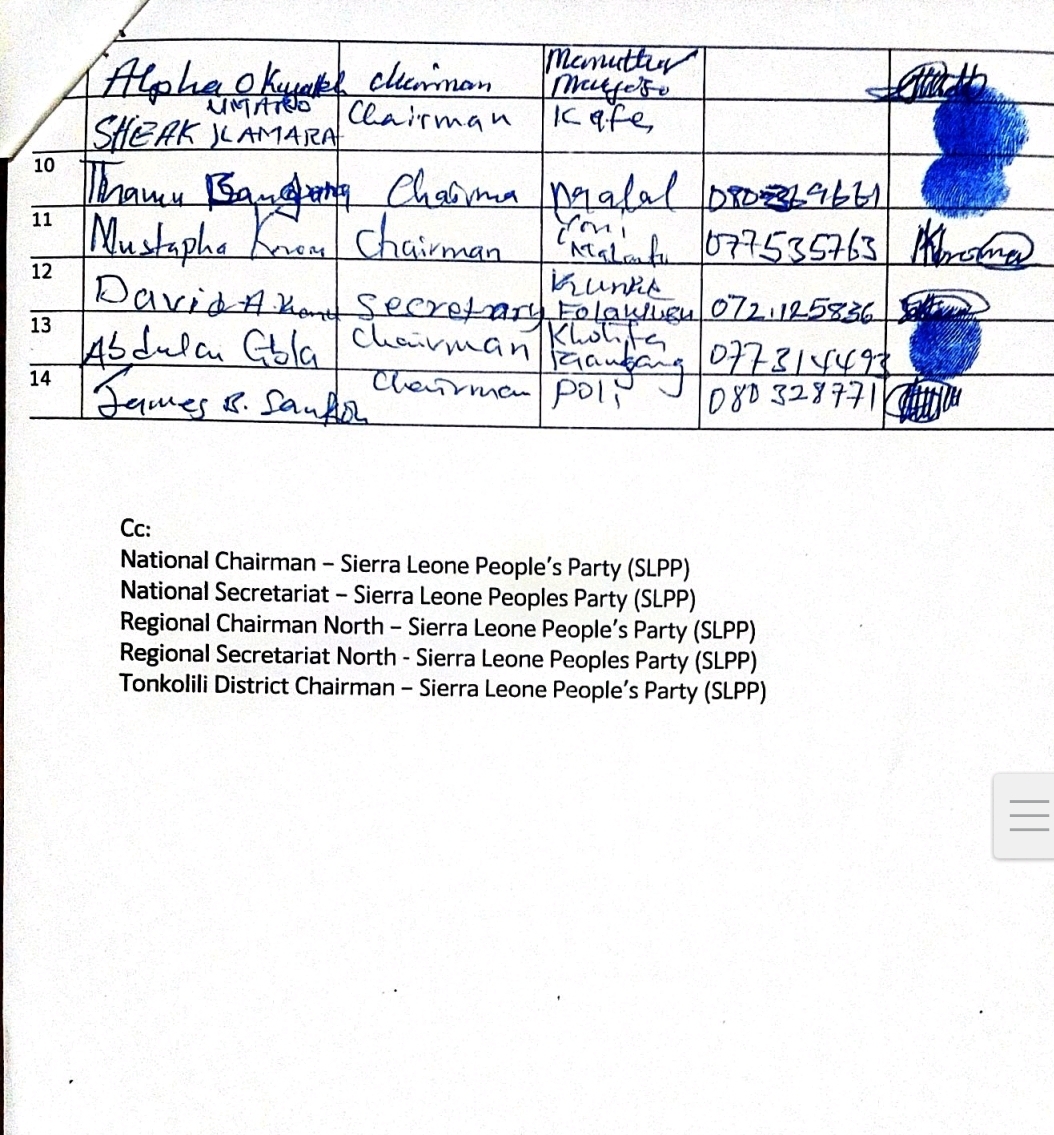 Alpha O chairman Mamuttu
UMARO Chairman Kafe
SHEAK KAMARA
10 Thamu Bangura Chairma Malal 080 369661
11 Mustapha Chairman Yoni 077535763
12 David A. Secretary Kunke 072.125836
13 Abdulai Gbla Chairman Kholifa 077314493
14 James B. Sankoh Chairman poli 080 328771
Cc:
National Chairman – Sierra Leone People's Party (SLPP)
National Secretariat – Sierra Leone Peoples Party (SLPP)
Regional Chairman North – Sierra Leone People's Party (SLPP)
Regional Secretariat North - Sierra Leone Peoples Party (SLPP)
Tonkolili District Chairman – Sierra Leone People's Party (SLPP)